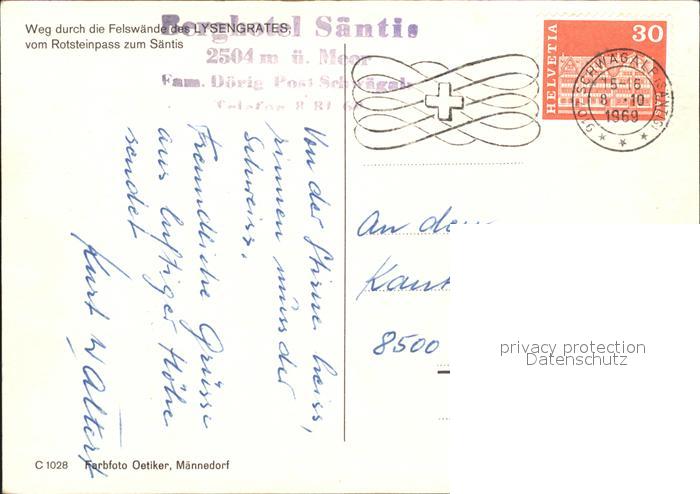 Weg durch die Felswände des LYSENGRATES,
vom Rotsteinpass zum Säntis
Berghotel Säntis
2504 m ü. Meer
Fam. Dörig Post Schwägalp
Telefon
HELVETIA
30
9107 SCHWÄGALP (SÄNTIS)
15-16
8.-10
1969
Von der Stirne heiss,
rinnen muss der
Schweiss.
Freundliche Grüsse
aus luftiger Höhe
sendet
Kurt Walter
An de
Kan
8500
privacy protection
Datenschutz
C 1028 Farbfoto Oetiker, Männedorf